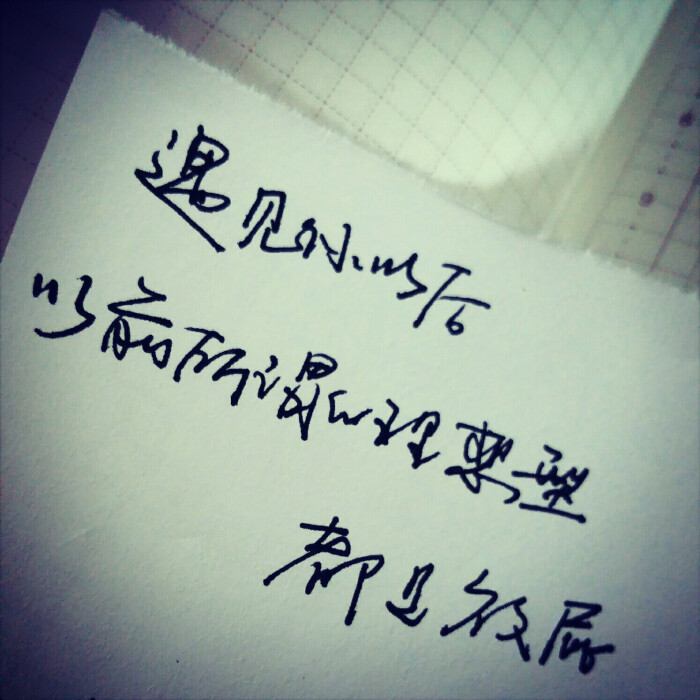 遇见你以后
以前所谓的理想型
都是放屁